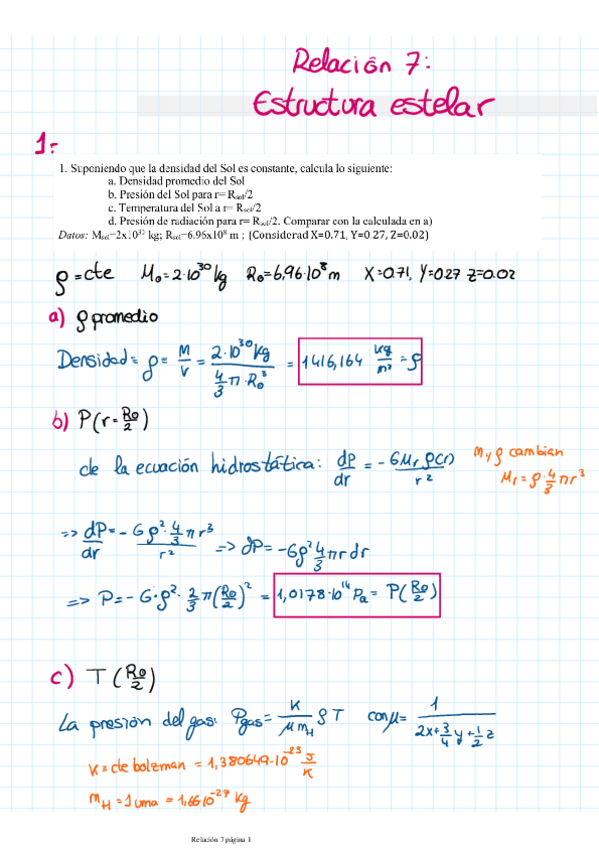 Relación 7:
Estructura estelar
1.-
1. Suponiendo que la densidad del Sol es constante, calcula lo siguiente:
a. Densidad promedio del Sol
b. Presión del Sol para r= Rsol/2
c. Temperatura del Sol a r= Rsol/2
d. Presión de radiación para r= Rsol/2. Comparar con la calculada en a)
Datos: Msol=2x10³⁰ kg; Rsol=6.96x10⁸ m ; (Considerad X=0.71, Y=0.27, Z=0.02)
ρ = cte M₀ = 2·10³⁰ kg R₀ = 6,96·10⁸ m X=0.71, Y=0.27 Z=0.02
a) ρ promedio
Densidad = ρ = M/V = 2·10³⁰ kg / (4/3 π·R₀³) = 1416,164 kg/m³ = ρ
b) P(r = R₀/2)
de la ecuación hidrostática: dP/dr = -G Mr ρ(r) / r²
M y ρ cambian
Mr = ρ·4/3 π r³
=> dP/dr = - G ρ²·4/3 π r³ / r² => dP = -G ρ² 4/3 π r dr
=> P = - G·ρ²· 2/3 π (R₀/2)² = 1,0178·10¹⁴ Pa = P(R₀/2)
c) T (R₀/2)
La presión del gas: Pgas = K/(μ mH) ρ T con μ = 1 / (2x + 3/4 y + 1/2 z)
K = cte bolzman = 1,380649·10⁻²³ J/K
mH = 1 uma = 1,66·10⁻²⁷ kg
Relación 7 página 1